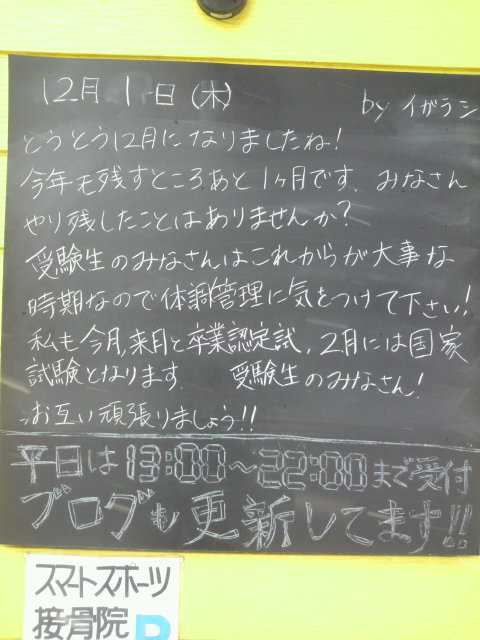 12月1日(木)
by イガラシ
とうとう12月になりましたね!
今年も残すところあと1ヶ月です。みなさん
やり残したことはありませんか?
受験生のみなさんはこれからが大事な
時期なので体調管理に気をつけて下さい!
私も今月,来月と卒業認定試,2月には国家
試験となります。 受験生のみなさん!
お互い頑張りましょう!!
平日は13:00~22:00まで受付
ブログも更新してます!!
スマートスポーツ
接骨院